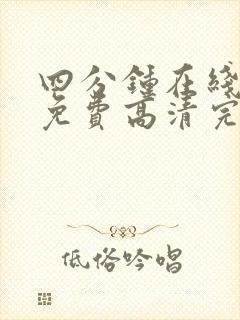 四分鍾在綫
免費高清完
低俗吟唱